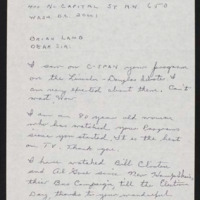 400 N. CAPITAL ST N.W. 650
WASH. D.C. 20001
BRIAN LAMB
DEAR SIR.
I saw on C-SPAN your program
on the Lincoln-Douglas debate I
am very excited about them. Can't
wait Now
I am an 80 year old woman
who has watched your Programs
since you started. It is the best
on TV. Thank you.
I have watched Bill Clinton
and Al Gore since New Hampshire,
their Bus Campaign, till the Election
Day, thanks to your wonderful